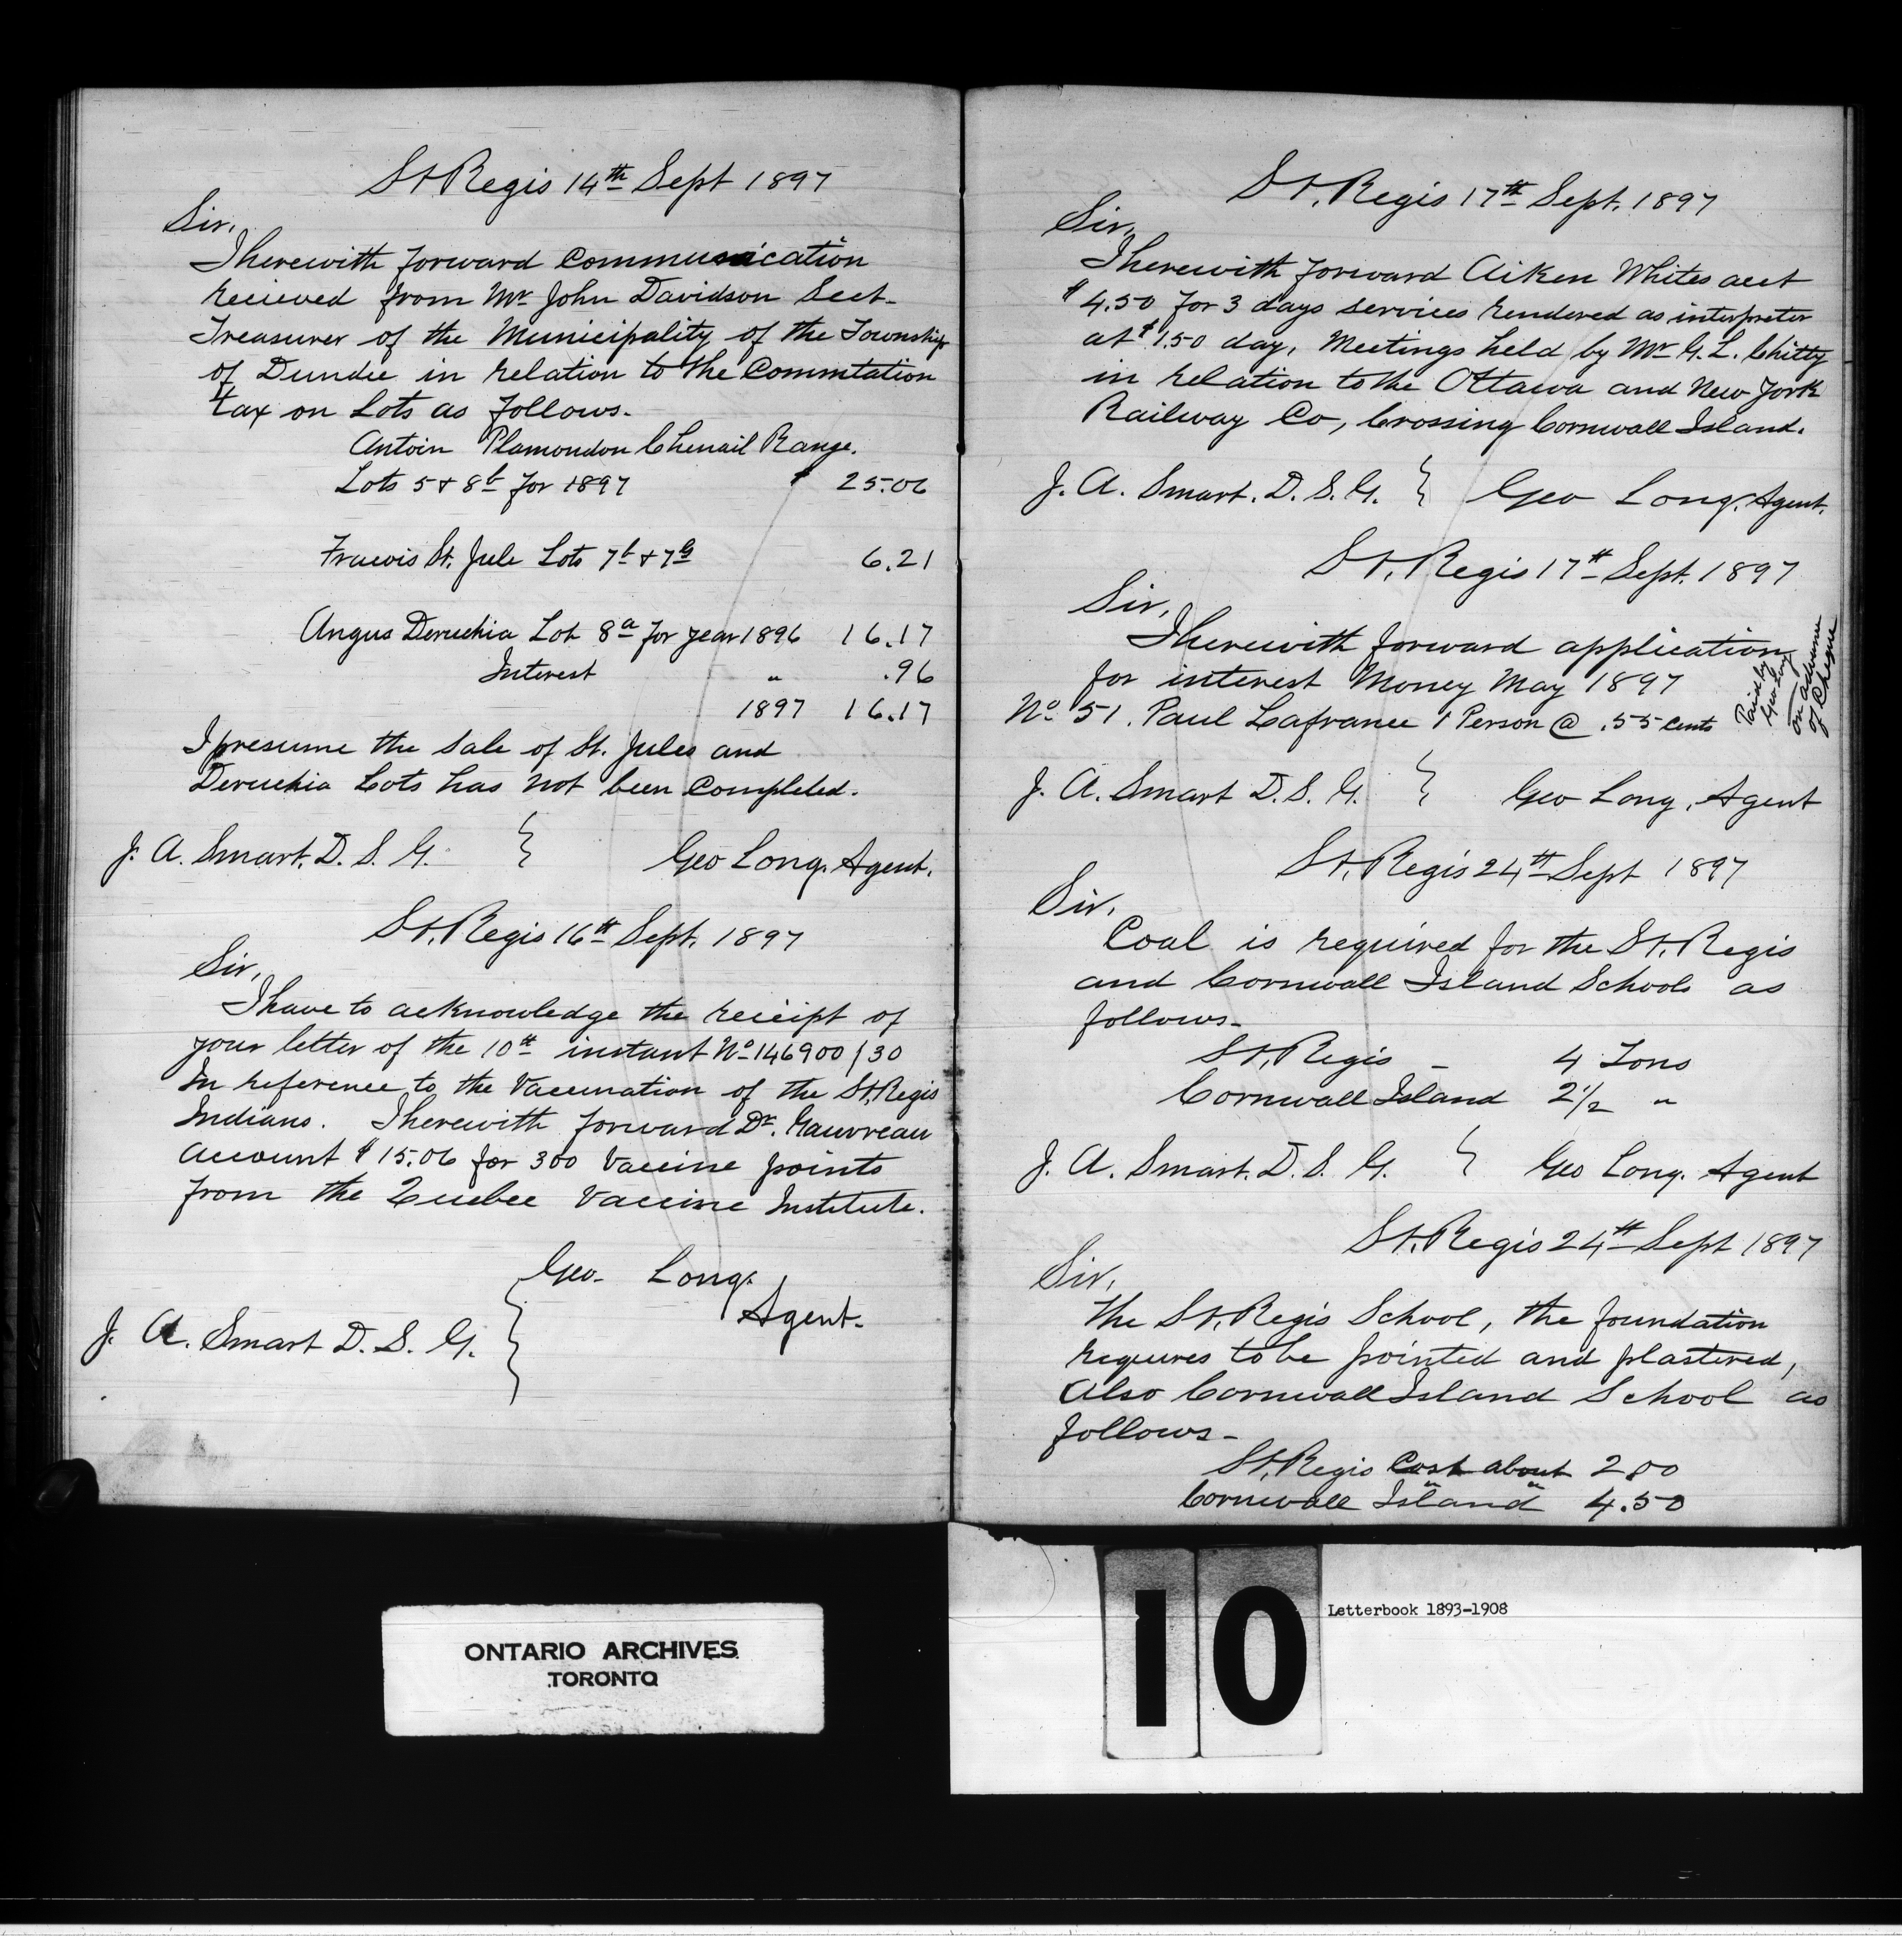 St Regis 14th Sept 1897
Sir,
I herewith forward Communication
recieved from Mr John Davidson Sect-
Treasurer of the Municipality of the Township
of Dundee in relation to the Commtation
tax on Lots as follows-
Antoin Plamondon Chenail Range.
Lots 5 & 8b for 1897 $ 25.06
Francois St. Jule Lots 7b & 7g 6.21
Angus Deruchia Lot 8a for year 1896 16.17
Interest " .96
1897 16.17
I presume the sale of St. Jules and
Deruchia Lots has not been Completed.
J. A. Smart. D. S. G. } Geo Long. Agent.
St. Regis 16th Sept. 1897
Sir,
I have to acknowledge the receipt of
your letter of the 10th instant No 146900/30
In reference to the Vaccination of the St. Regis
Indians. I herewith forward Dr. Gauvreau
Account $ 15.06 for 300 Vaccine points
from the Quebec Vaccine Institute.
Geo- Long.
Agent.
J. A. Smart D. S. G. }
St. Regis 17th Sept. 1897
Sir,
I herewith forward Aiken Whites acct
$4.50 for 3 days services rendered as interpreter
at $1.50 day, Meetings held by Mr G. L. Chitty
in relation to the Ottawa and New York
Railway Co, Crossing Cornwall Island.
J. A. Smart. D. S. G. } Geo Long. Agent.
St. Regis 17th Sept. 1897
Sir,
I herewith forward application
for interest Money May 1897
No 51. Paul Lafrance 1 Person @ .55 cents
Paid by
Geo Long
on advance
of Cheque
J. A. Smart D. S. G. } Geo Long, Agent
St. Regis 24th Sept 1897
Sir.
Coal is required for the St. Regis
and Cornwall Island Schools as
follows-
St. Regis - 4 Tons
Cornwall Island 2 1/2 "
J. A. Smart. D. S. G. } Geo Long. Agent
St. Regis 24th Sept 1897
Sir,
The St. Regis School, the foundation
requires to be pointed and plastered,
Also Cornwall Island School as
follows-
St. Regis Cost about 2.00
Cornwall Island " " 4.50
ONTARIO ARCHIVES
TORONTO
10
Letterbook 1893-1908